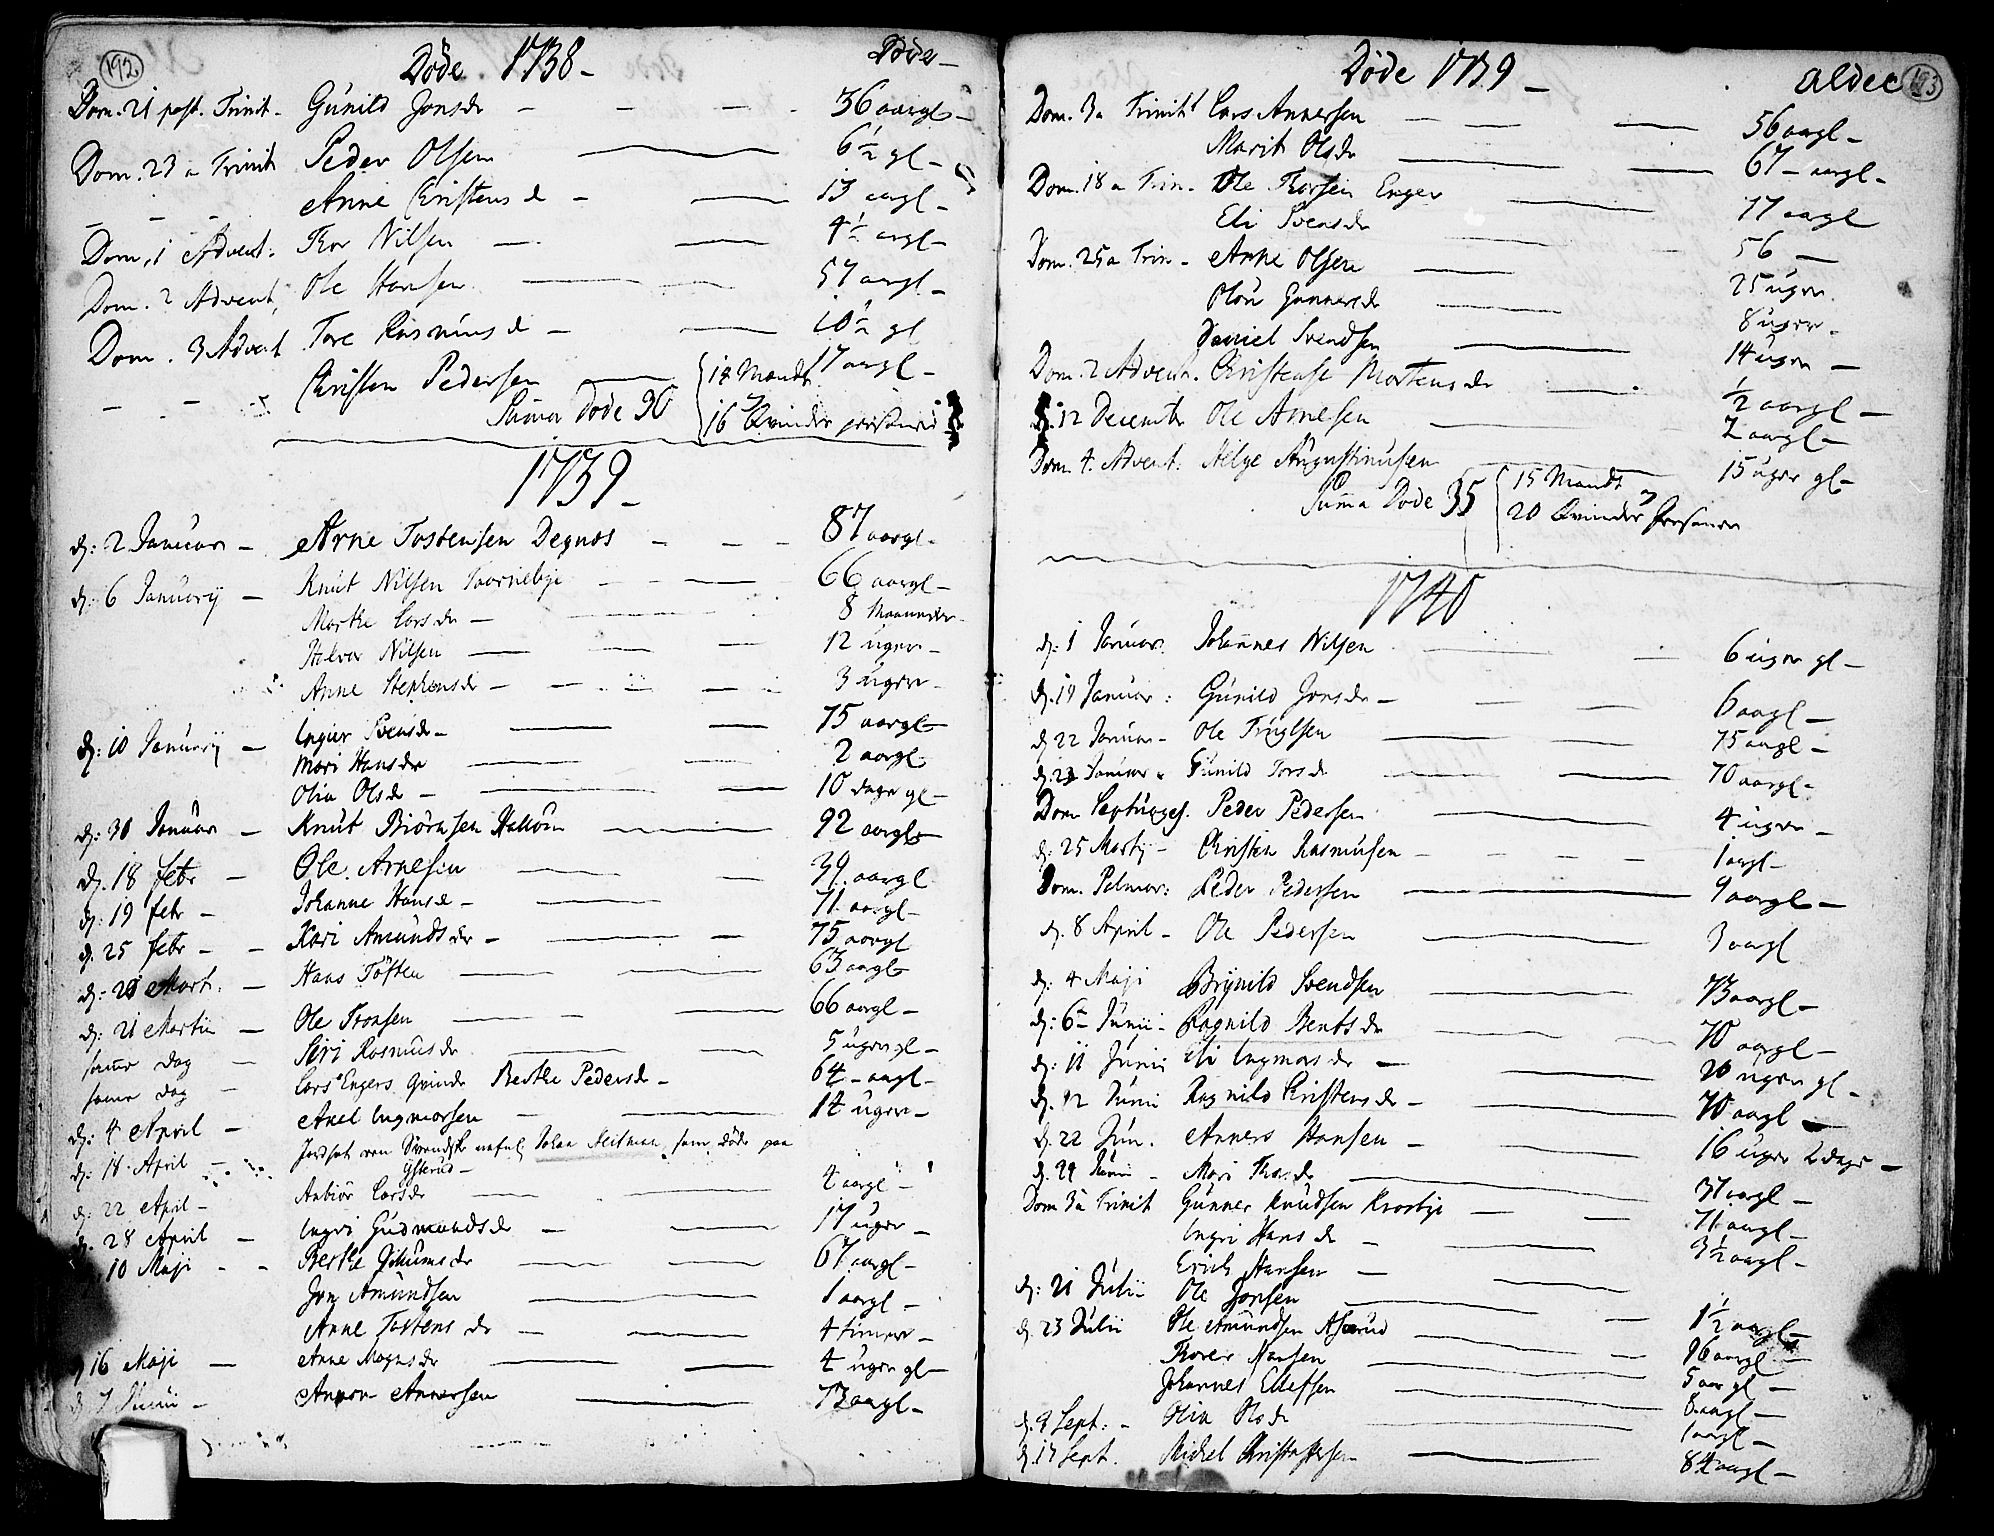 192
Døde 1738 -
Døde -
Dom. 21 post. Trinit - Gunild Jonsdr - 36 aargl -
Dom. 23 a Trinit Peder Olsen 6 1/2 gl -
- - - Anne Christensd - 13 aargl -
Dom. 1 Advent. Thor Nilsen - 4 1/2 argl -
Dom. 2 Advent, Ole Hansen 57 aargl -
Dom. 3 Advent Tore Rasmusd - 10 1/2 gl
- - - Christen Pedersen 17 aargl -
Suma Døde 30 { 14 Mandk
16 Qvinde personer
1739 -
d: 2 Januar - Arne Tostensen Degnes - - - 87 aargl -
d: 6 Januarij - Knut Nilsen Taarnebye - - - 66 aargl -
Marthe Larsdr - 8 Maaneder -
Halvor Nilsen - 12 uger -
Anne Stephensdr - 3 uger -
d: 10 Januarij - Ingier Svensdr - 75 aargl -
Mari Hansdr 2 aargl
Olia Olsdr - 10 dage gl -
d: 30 Januar - Knut Biörnsen Hallum 92 aargl
d. 18 febr - Ole Arnesen 39 aargl
d: 19 febr - Johanne Hansd - 71 aargl -
d. 25 febr - - Kari Amundsdr - 75 aargl
d: 20 Mart. - Hans Töften 63 aargl
d: 21 Martii - Ole Tronsen 66 aargl -
samme dag - Siri Rasmusdr 5 uger gl -
samme dag - Lars Engers Qvinde Berthe Pedersd - 64 - aargl -
d: 4 April - Axel Ingmorsen 14 uger -
d: 18 April - Johan som døde paa
d: 22 April - Anbiör Larsdr 4 aargl -
d. 28 April - Ingri Gudmundsdr - 17 uger -
10 Maji - - Berthe 67 aargl -
Jon Amundsen 1 aargl -
Anne Tostensdr - 4 timer -
16 Maji - Anne Magnsdr 4 uger gl -
7 Junii - Annon Annersen 73 aargl -
193
Døde 1739 -
alder
Dom. 3 a Trinit Lars Annersen 56 aargl -
Marit Olsdr 67 - aargl -
Dom. 18 a Trin - Ole Thorsen Enger 77 aargl
Eli Svensdr 56 -
Dom. 25 a Trin - Arne Olsen 25 uger
Olou Gunnersdr 8 uger -
Daniel Svendsen 14 uger -
Dom. 2 Advent. Christense Mortensdr 1/2 aargl -
d. 12 Decembr Ole Arnesen 2 aargl -
Dom. 4. Advent. Helge Augustinusen 15 uger gl -
Suma Døde 35 { 15 Mandk
20 Qvinde Personer
1740
d: 1 Januar. Johannes Nilsen 6 uger gl -
d. 19 Januar: Gunild Jonsdr - 6 aargl -
d 22 Januar - Ole Truglsen 75 aargl -
d. 23 Januar - Gunild Torsdr 70 aargl -
Dom Septuages. Peder Pedersen 4 uger -
d: 25 Martij - Christen Rasmusen - 1 argl -
Dom. Palmar: Peder Pedersen 9 aargl -
d. 8 April - Ole Pedersen 3 aargl
d: 4 Maji Brynild Svendsen 73 aargl -
d: 6 Junii - Ragnild Bentsdr 70 aargl -
d: 11 Junii Eli Ingmorsdr - 20 uger gl -
d. 12 Junii Ragnild Christensdr - 70 aargl -
d. 22 Jun. Anners Hansen - 16 uger 2 dage -
d. 24 Junii - Mari Thordr 37 aargl -
Dom 3 a Trinit Gunner Knudsen Krosbye - 71 aargl -
Ingri Hansdr - 3 1/2 aargl -
Erich Hansen -
d: 21 Julii Ole Jonsen 1 1/2 aargl -
d. 23 Julii Ole Amundsen Aserud 86 aargl -
Thorer Hansen 5 aargl -
Johannes Ellefsen 8 aargl -
d. 9 Sept: - Olia Olsdr 1 aargl -
d. 17 Sept. Michel Christophersen 84 aargl -